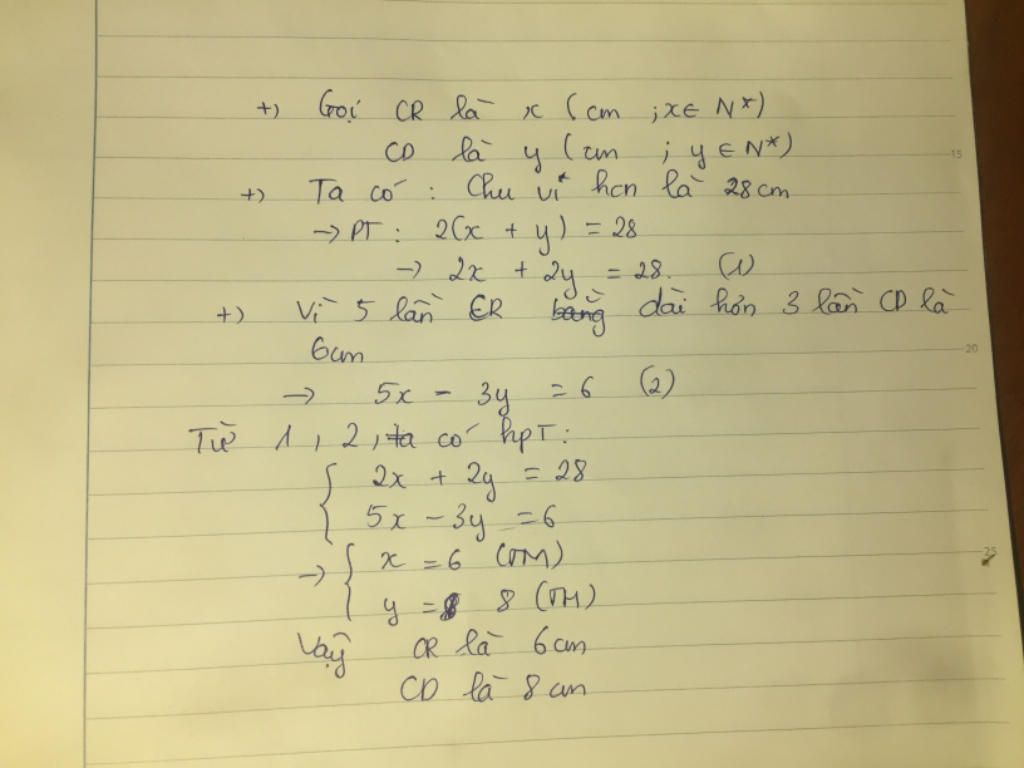 +) Gọi CR là x (cm ; x ∈ N*)
CD là y (cm ; y ∈ N*)
15
+) Ta có : Chu vi hcn là 28cm
→ PT : 2(x + y) = 28
→ 2x + 2y = 28. (1)
+) Vì 5 lần CR bằng dài hơn 3 lần CD là
6cm
20
→ 5x - 3y = 6 (2)
Từ 1, 2, ta có hpT:
{ 2x + 2y = 28
5x - 3y = 6
→ { x = 6 (TM)
25
y = 8 8 (TM)
Vậy CR là 6cm
CD là 8cm